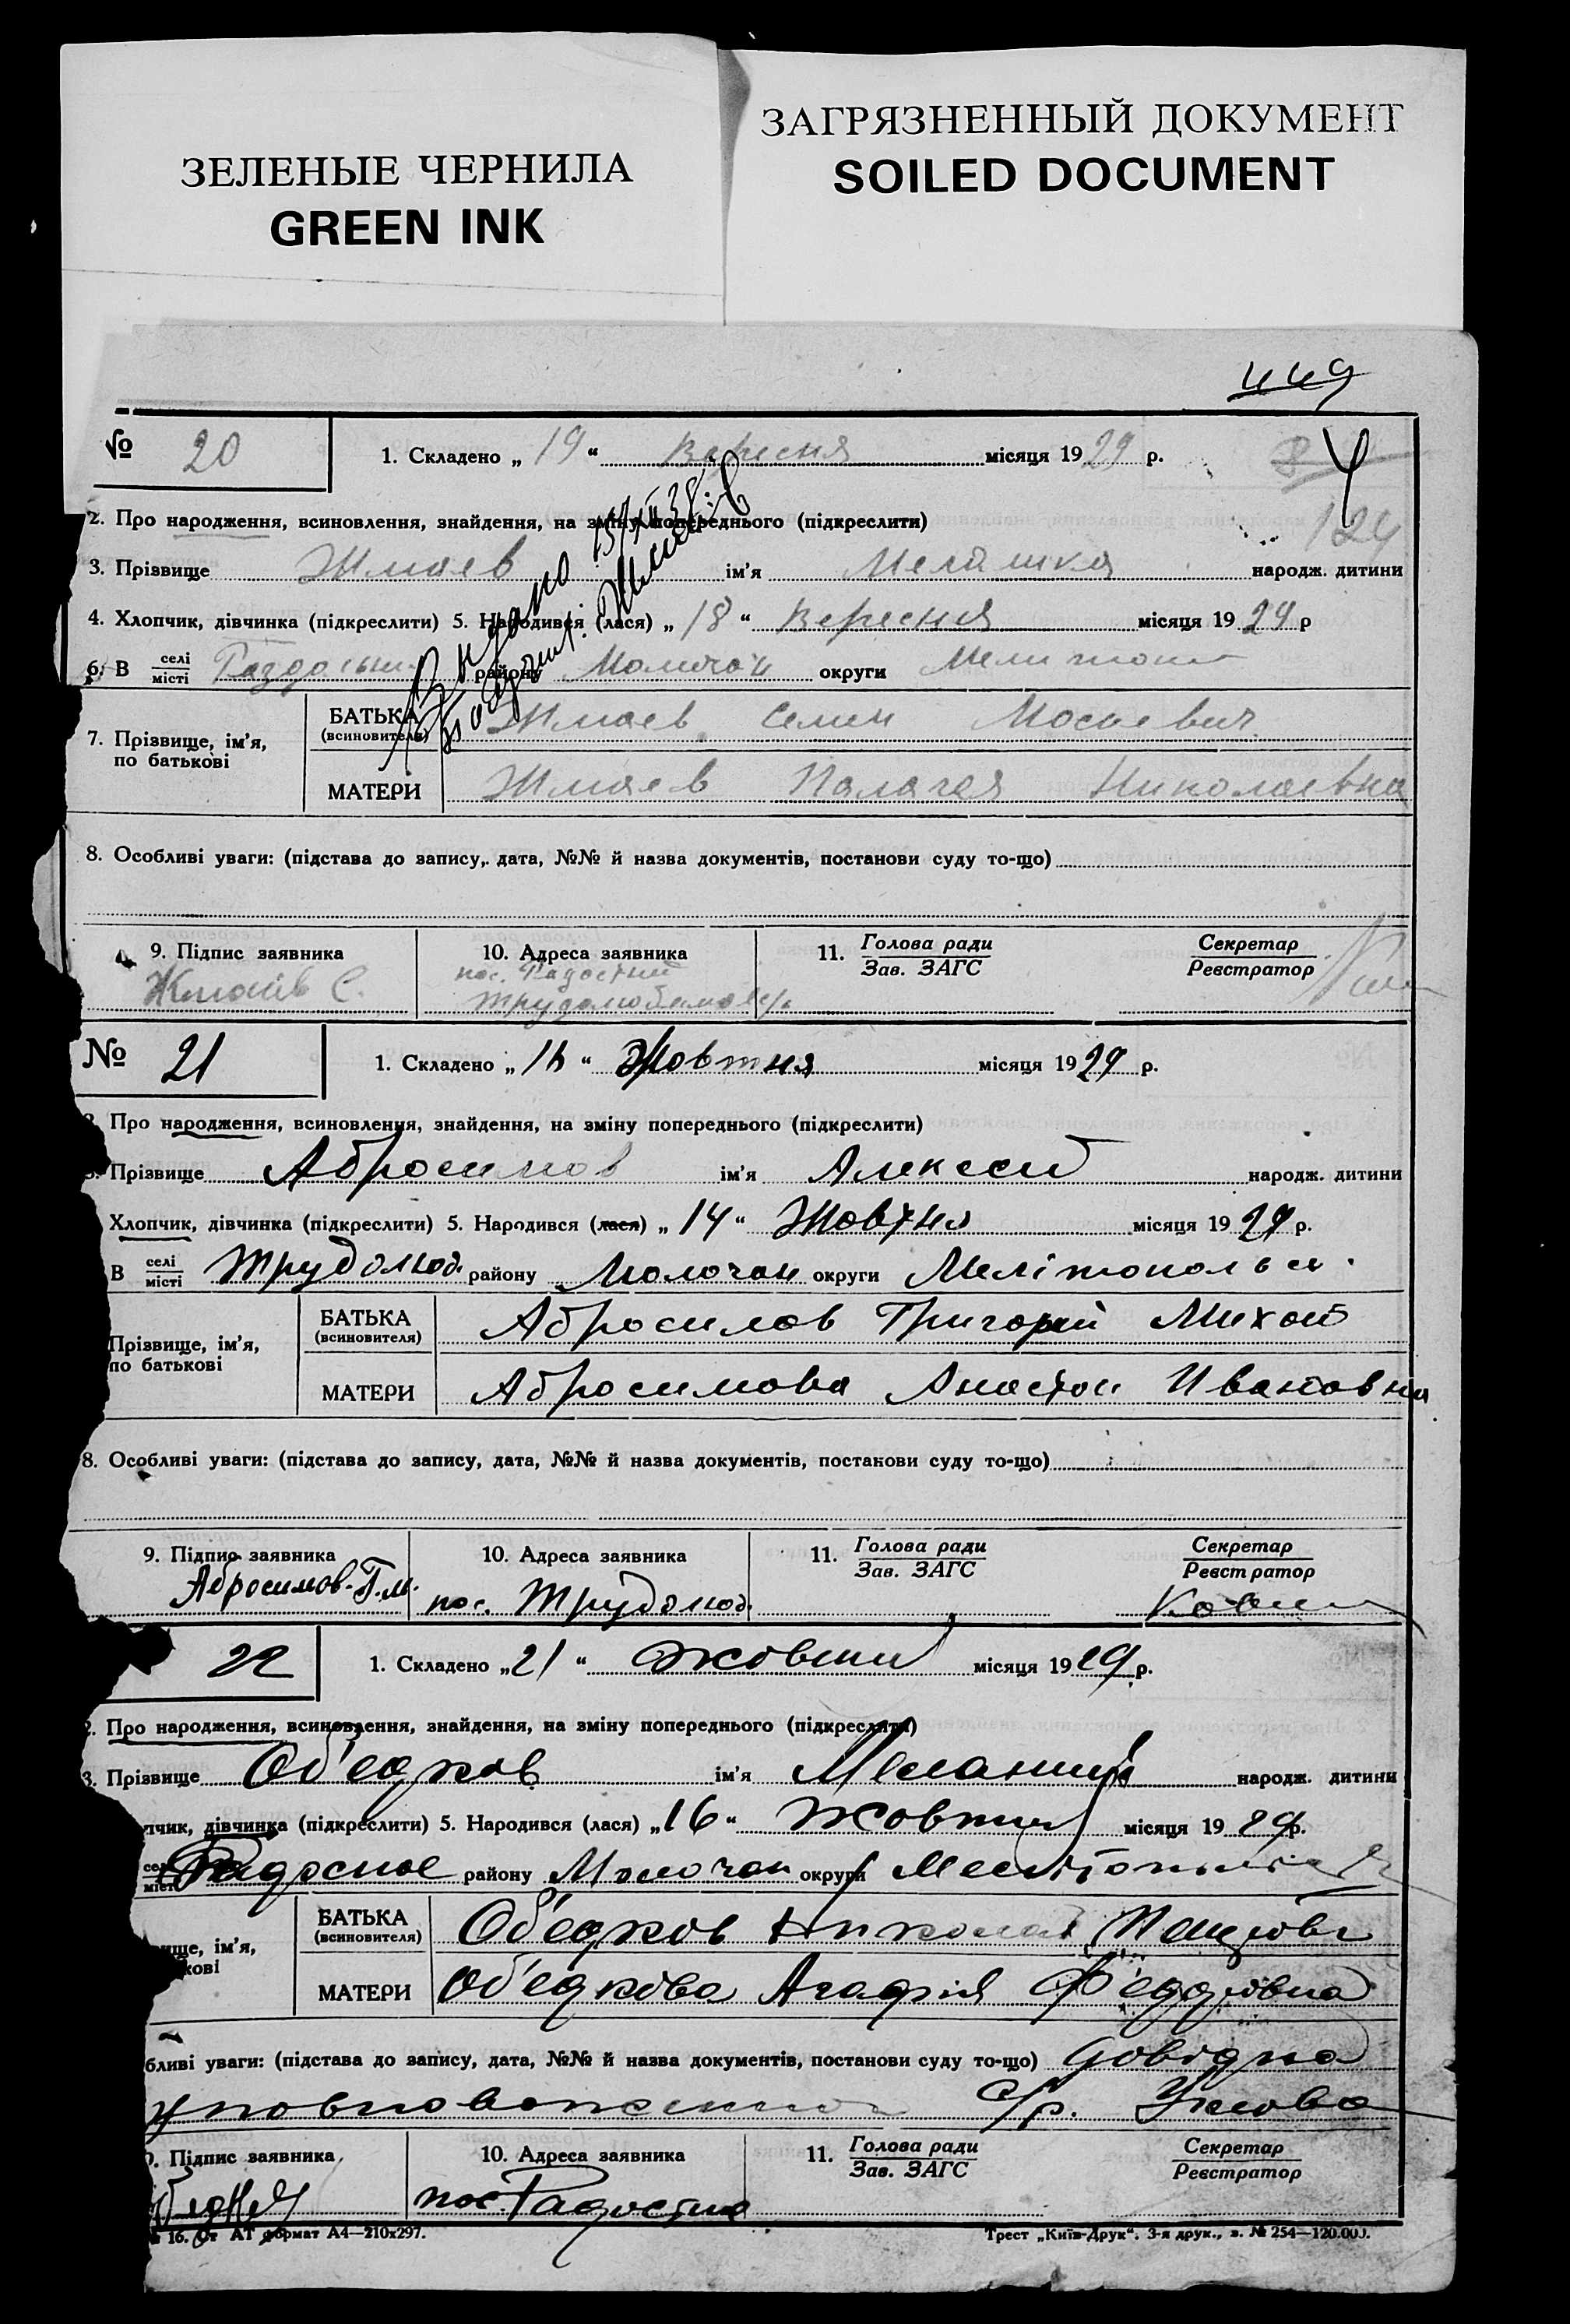 ЗЕЛЕНЫЕ ЧЕРНИЛА
GREEN INK
ЗАГРЯЗНЕННЫЙ ДОКУМЕНТ
SOILED DOCUMENT
449
№ 20
1. Складено „ 19 “ Вересня місяця 1929 р.
124
2. Про народження, всиновлення, знайдення, на зміну попереднього (підкреслити)
3. Прізвище Жмаев ім’я Мелашка народж. дитини
4. Хлопчик, дівчинка (підкреслити) 5. Народився (лася) „ 18 “ Вересня місяця 1929 р
6. В селі місті району Молочан округи
Видано
7. Прізвище, ім’я, по батькові
БАТЬКА (всиновителя) Жмаев Семен
МАТЕРИ Жмаев Палагея Николаевна
8. Особливі уваги: (підстава до запису, дата, №№ й назва документів, постанови суду то-що)
9. Підпис заявника
10. Адреса заявника
11. Голова ради Зав. ЗАГС
Секретар Реєстратор
Жмаїв С.
пос. Радостний
№ 21
1. Складено „ 16 “ Жовтня місяця 1929 р.
Про народження, всиновлення, знайдення, на зміну попереднього (підкреслити)
Прізвище Абросимов ім’я Алексей народж. дитини
Хлопчик, дівчинка (підкреслити) 5. Народився (лася) „ 14 “ Жовтня місяця 1929 р.
В селі місті Трудолюб. району Молочан округи Мелітопольс.
Прізвище, ім’я, по батькові
БАТЬКА (всиновителя) Абросимов Григорий Михай
МАТЕРИ Абросимова Анастаси Ивановна
8. Особливі уваги: (підстава до запису, дата, №№ й назва документів, постанови суду то-що)
9. Підпис заявника
10. Адреса заявника
11. Голова ради Зав. ЗАГС
Секретар Реєстратор
Абросимов. Г.М.
пос. Трудолюб.
22
1. Складено „ 21 “ Жовтня місяця 1929 р.
2. Про народження, всиновлення, знайдення, на зміну попереднього (підкреслити)
3. Прізвище Об'едков ім’я Меланий народж. дитини
пчик, дівчинка (підкреслити) 5. Народився (лася) „ 16 “ Жовтня місяця 1929 р.
Радосное району Молочан округи
ище, ім’я,
кові
БАТЬКА (всиновителя) Об'едков Николай
МАТЕРИ Об'едкова Агафія Федоровна
бливі уваги: (підстава до запису, дата, №№ й назва документів, постанови суду то-що) Довідка
уповноваженног с/р.
Підпис заявника
10. Адреса заявника
11. Голова ради Зав. ЗАГС
Секретар Реєстратор
пос. Радостне
16. Ст АТ формат А4—210x297.
Трест „Київ-Друк“. 3-я друк., з. № 254—120.000.